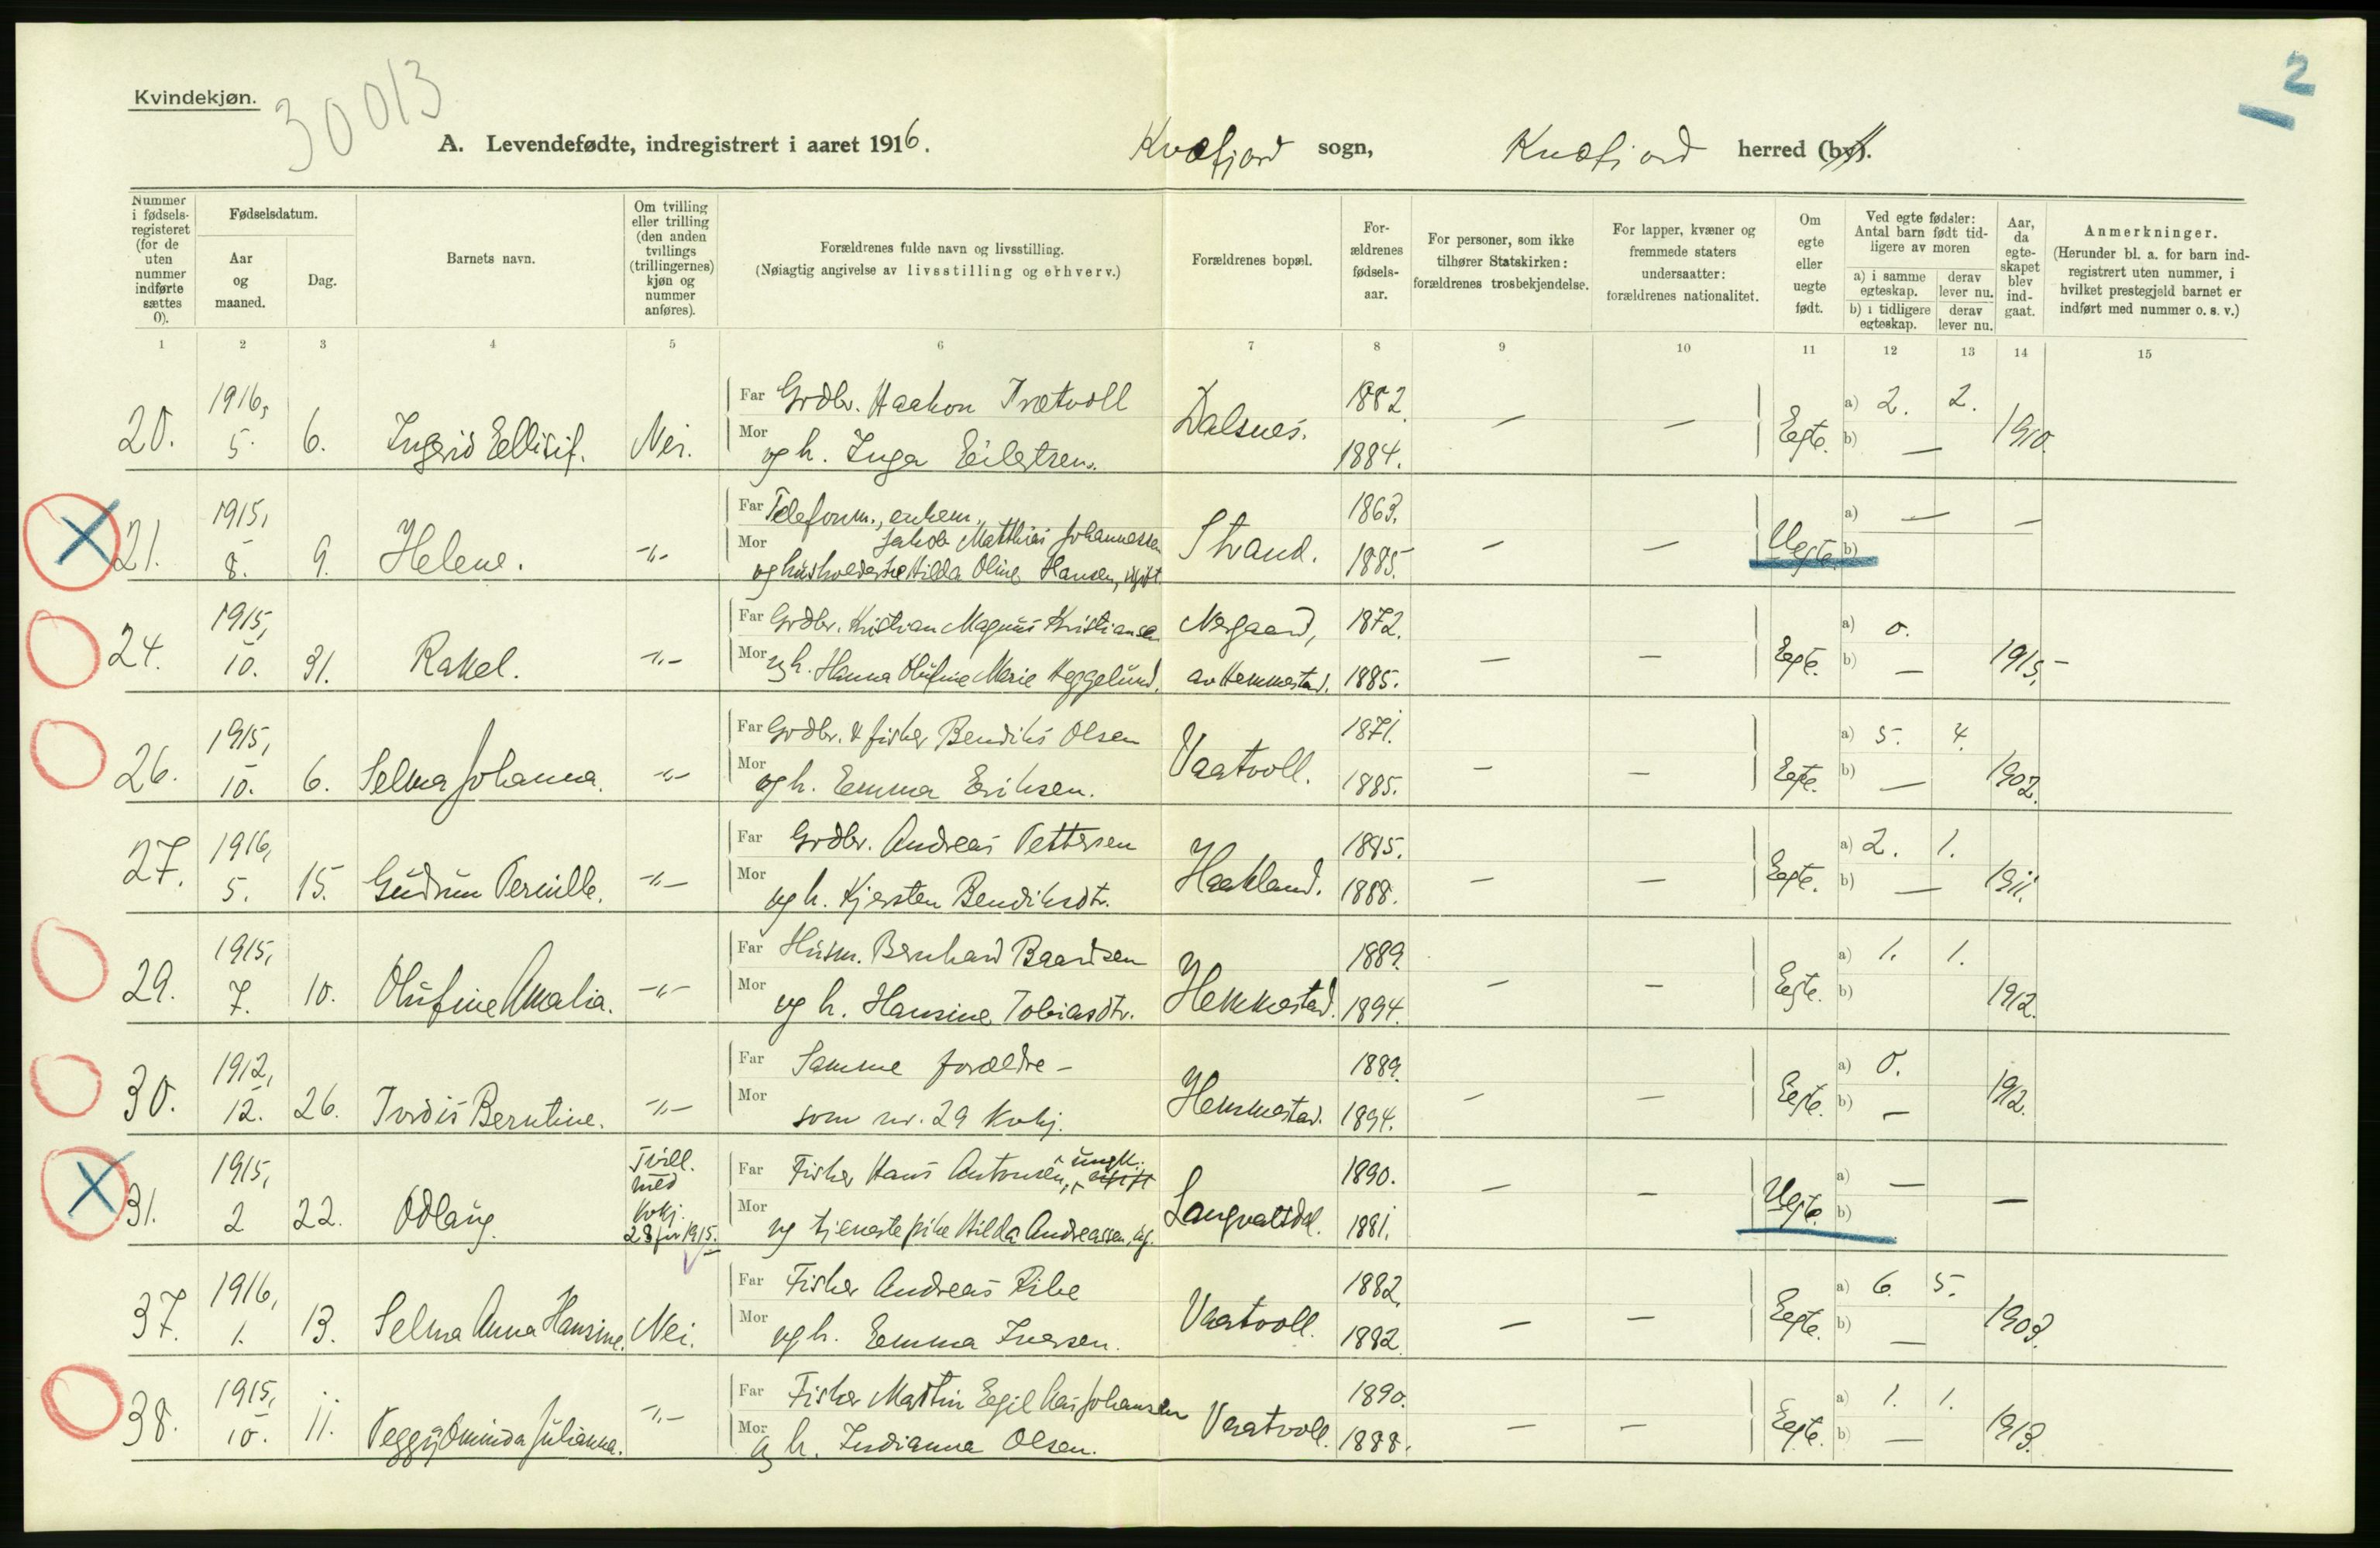 2
Kvindekjøn.
30013
A. Levendefødte, indregistrert i aaret 1916.
Kvæfjord sogn, Kvæfjord herred (by).
Nummer i fødsels-registeret (for de uten nummer indførte sættes 0).
Fødselsdatum.
Aar og maaned.
Dag.
Barnets navn.
Om tvilling eller trilling (den anden tvillings (trillingernes) kjøn og nummer anføres).
Forældrenes fulde navn og livsstilling.
(Nøiagtig angivelse av livsstilling og erhverv.)
Forældrenes bopæl.
For-ældrenes fødsels-aar.
For personer, som ikke tilhører Statskirken: forældrenes trosbekjendelse.
For lapper, kvæner og fremmede staters undersaatter: forældrenes nationalitet.
Om egte eller uegte født.
Ved egte fødsler: Antal barn født tid-ligere av moren
a) i samme egteskap.
derav lever nu.
b) i tidligere egteskap.
derav lever nu.
Aar, da egte-skapet blev ind-gaat.
Anmerkninger.
(Herunder bl. a. for barn ind-registrert uten nummer, i hvilket prestegjeld barnet er indført med nummer o. s. v.)
1 2 3 4 5 6 7 8 9 10 11 12 13 14 15
20. 1916, 5. 6. Ingrid Ellisif. Nei. Far Grdbr. Haakon Trætvoll Dalsnes. 1882. — — Egte. a) 2. 2. 1910.
Mor og h. Inga Eilertsen. 1884. b) —
21. 1915, 8. 9. Helene. -"- Far Telefonm., enkem., Jakob Matthias Johannessen Strand. 1863. — — Uegte. a) — —
Mor og husholderske Hilda Oline Hansen, ugift 1885. b)
24. 1915, 10. 31. Rakel. -"- Far Grdbr. Kristian Magnus Kristiansen Nergaard, 1872. — — Egte. a) 0. 1915.
Mor og h. Hanna Olufine Marie Heggelund. av Hemmestad. 1885. b) —
26. 1915, 10. 6. Selma Johanna. -"- Far Grdbr. & fisker Bendiks Olsen Vaatvoll. 1871. — — Egte. a) 5. 4. 1902.
Mor og h. Emma Eriksen. 1885. b) —
27. 1916, 5. 15. Gudrun Pernille. -"- Far Grdbr. Andreas Pettersen Haakland. 1885. — — Egte. a) 2. 1. 1911.
Mor og h. Kjersten Bendiksdtr. 1888. b) —
29. 1915, 7. 10. Olufine Amalia. -"- Far Husm. Bernhard Baardsen Hemmestad. 1889. — — Egte. a) 1. 1. 1912.
Mor og h. Hansine Tobiasdtr. 1894. b)
30. 1912, 12. 26. Tordis Berntine. -"- Far Samme forældre - Hemmestad. 1889. — — Egte. a) 0. 1912.
Mor som nr. 29 kvkj. 1894. b) —
31. 1915, 2 22. Odlaug. Tvill. med kvkj. 28 for 1915. Far Fisker Hans Antonsen, ungk. Langvatsdal. 1890. — — Uegte. a) — —
Mor og tjenestepike Hilda Andreassen, ug. 1881. b)
37. 1916, 1. 13. Selma Anna Hansine. Nei. Far Fisker Andreas Ribe Vaatvoll. 1882. — — Egte. a) 6. 5. 1903.
Mor og h. Emma Iversen. 1882. b) —
38. 1915, 10. 11. Peggy Ominda Julianna. -"- Far Fisker Martin Egil Kaa Johansen Vaatvoll. 1890. — — Egte. a) 1. 1. 1913.
Mor og h. Indianna Olsen. 1888. b) —